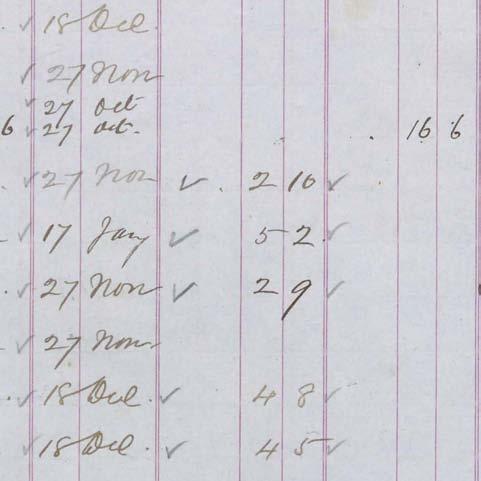 18 Dec.
27 Nov
27 Oct
6 27 Oct. 16 6
27 Nov 2 10
17 Jany 5 2
27 Nov 2 9
27 Nov
18 Dec. 4 8
18 Dec. 4 5